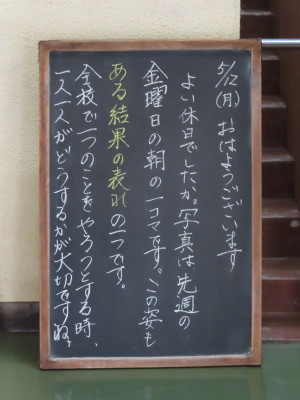 5/12(月) おはようございます
よい休日でしたか。写真は先週の
金曜日の朝の一コマです。この姿も
ある結果の表れの一つです。
全校で一つのことをやろうとする時、
一人一人がどうするかが大切ですね。